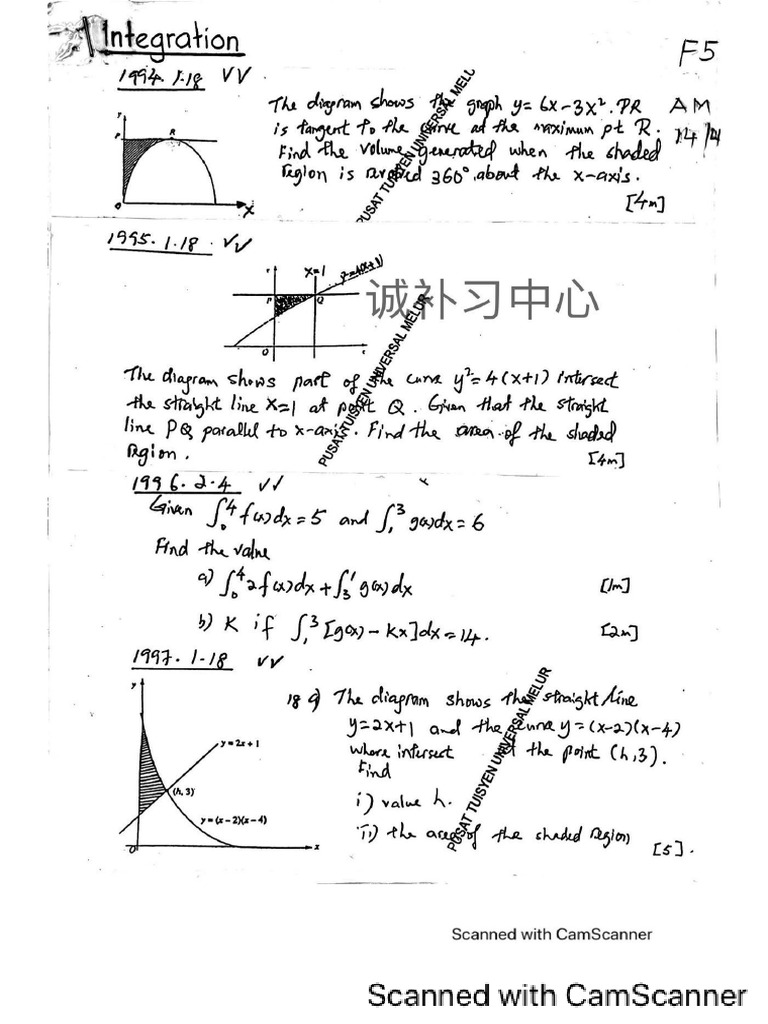 Integration
F5
1994. 1.18 VV
The diagram shows the graph y = 6x - 3x². PR
AM
is tangent to the curve at the maximum pt R.
14/4
Find the volume generated when the shaded
region is revolved 360° about the x-axis.
[4m]
PUSAT TUISYEN UNIVERSAL MELU
Y
P
R
O
X
1995. 1.18. VV
x=1
y²=4(x+1)
P
Q
O
诚补习中心
PUSAT TUISYEN UNIVERSAL MELUR
The diagram shows part of the curve y²= 4(x+1) intersect
the straight line x=1 at point Q. Given that the straight
line PQ parallel to x-axis. Find the area of the shaded
region.
[4m]
1996. 2.4 VV
Given ∫₀⁴ f(x)dx = 5 and ∫₁³ g(x)dx = 6
Find the value
a) ∫₀⁴ 2f(x)dx + ∫₃¹ g(x)dx [1m]
b) K if ∫₁³ [g(x) - Kx]dx = 14. [2m]
1997. 1-18 VV
y
y = 2x + 1
(h, 3)
y = (x-2)(x-4)
O
x
18 a) The diagram shows the straight line
y=2x+1 and the curve y = (x-2)(x-4)
where intersect at the point (h,3).
Find
i) value h.
ii) the area of the shaded region
[5].
PUSAT TUISYEN UNIVERSAL MELUR
Scanned with CamScanner
Scanned with CamScanner